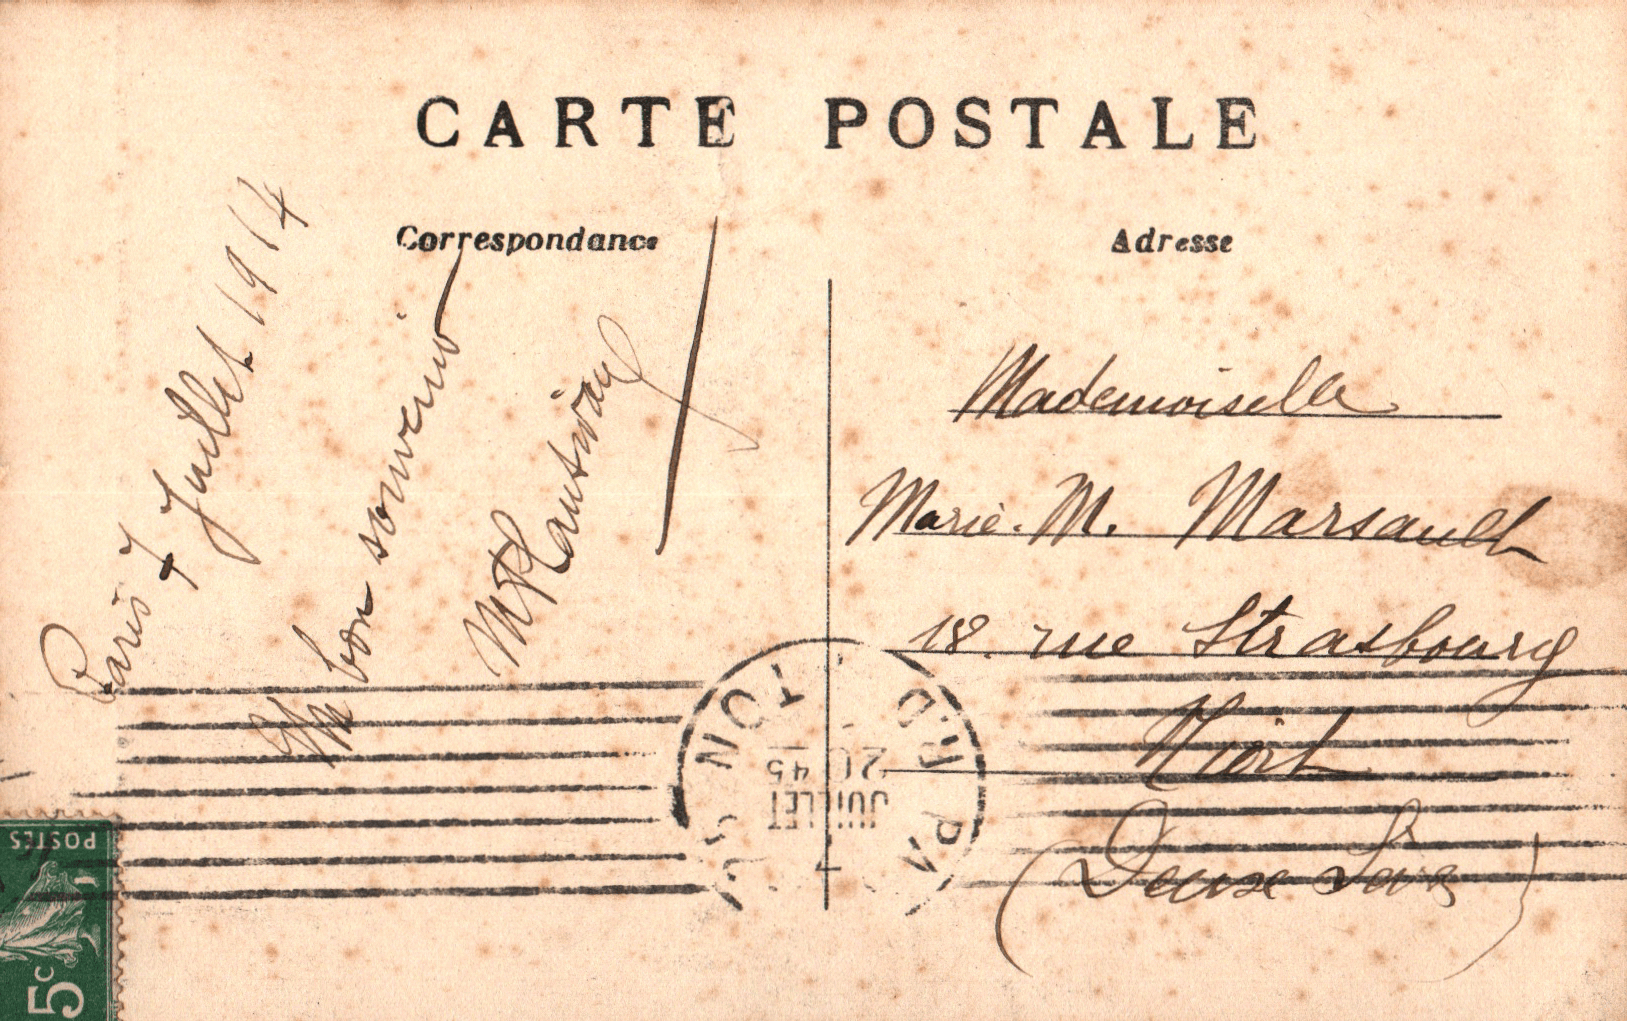 CARTE POSTALE
Correspondance
Adresse
Paris 7 Juillet 1914
Un bon souvenir
Mademoiselle
Marie. M. Marsault
18. rue Strasbourg
Niort
(Deux Sèvres)
JUILLET
20 45
7
POSTES
5c